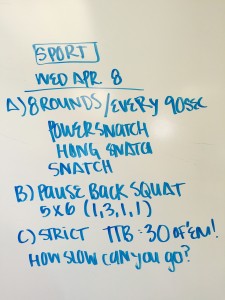 SPORT
WED APR 8
A) 8 ROUNDS / EVERY 90SEC
POWER SNATCH
HANG SNATCH
SNATCH
B) PAUSE BACK SQUAT
5x6 (1,3,1,1)
C) STRICT TTB :30 OF 'EM!
HOW SLOW CAN YOU GO?